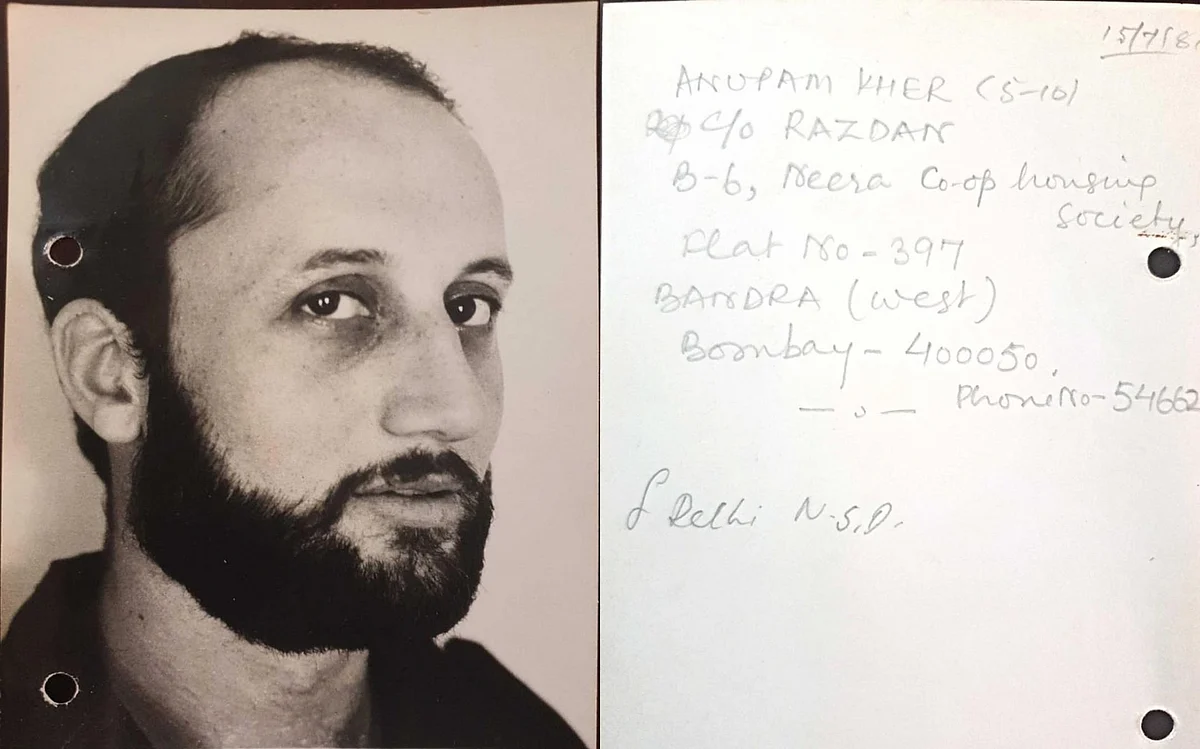 15/7/81
ANUPAM KHER (5-10)
C/o RAZDAN
B-6, Neera Co-op housing
society,
Flat No - 397
BANDRA (west)
Bombay - 400050.
Phone No - 54662
Delhi N.S.D.